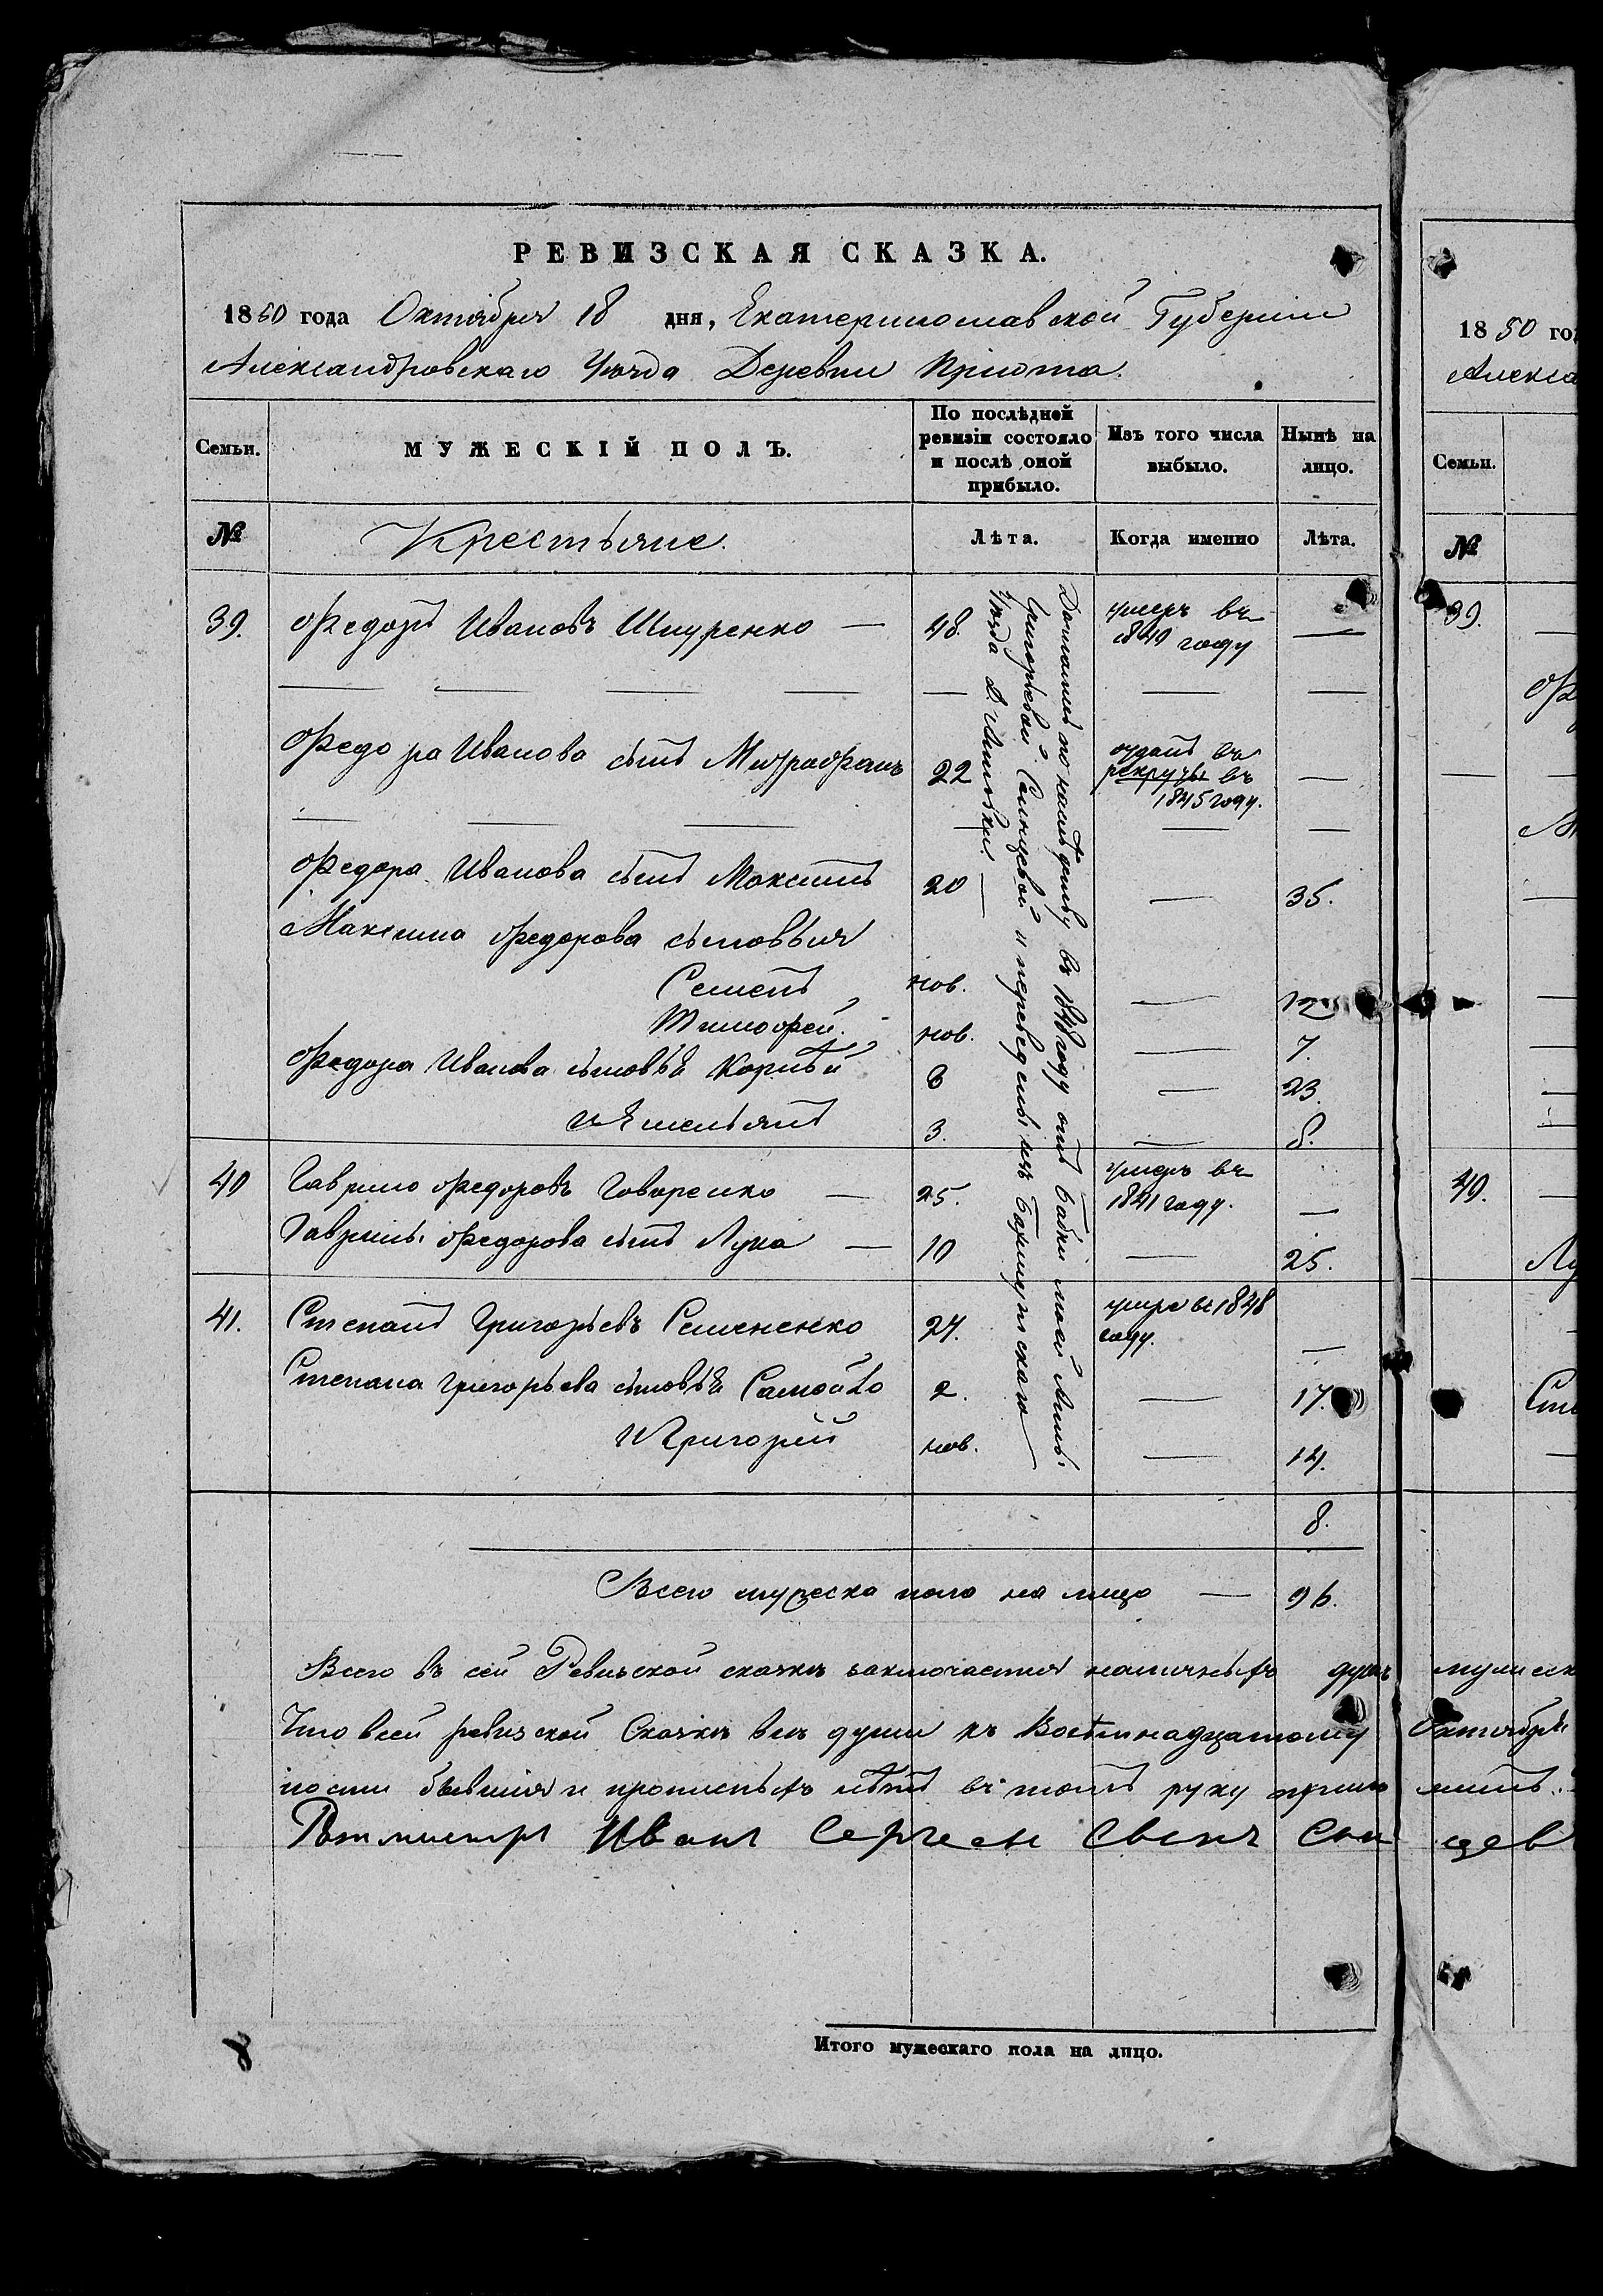 РЕВИЗСКАЯ СКАЗКА.
1850 года Октября 18 дня, Екатеринославской Губернии
Александровскаго Уезда Деревни Приюта.
Семьи. МУЖЕСКІЙ ПОЛЪ. По послѣдней ревизіи состояло и послѣ оной прибыло. Изъ того числа выбыло. Нынѣ на лицо.
№ Крестьяне. Лѣта. Когда именно Лѣта.
39. Федоръ Ивановъ Шнуренко — 48. умеръ въ 1849 году —
Федора Иванова сынъ Митрофанъ 22 отданъ въ рекруты въ 1845 году. —
Федора Иванова сынъ Максимъ 20 — — 35.
Максима Федорова сыновья
Семенъ нов. — 12
Тимофей. нов. — 7.
Федора Иванова сыновья Корнѣй 8 — 23.
и Емельянъ 3. — 8.
40 Гаврило Федоровъ Говоренко — 25. умеръ въ 1841 году. —
Гаврилы Федорова сынъ Лука — 10 — 25.
41. Степанъ Григорьевъ Семененко 27. умре въ 1848 году. —
Степана Григорьева сыновья Самойло 2. — 17.
и Григорій нов. — 14.
Достались по наслѣдству въ 1848 году отъ бабки моей Анны
Григорьевой Синицевой и переведены изъ Бахмутскаго
Уезда Д.
8.
Всего мужеска пола на лицо — 96.
Всего въ сей Ревизской сказке заключается наличныхъ душъ мужеск
Что въ сей ревизской Сказке все души къ Восемнадцатому Октября
бывшія и прописныхъ нѣтъ въ томъ руку
Ротмистръ Иванъ Сергеев Сынъ
8
Итого мужескаго пола на лицо.
18 50 го
Алекса
Семьи.
№
39.
40.
Лу
Сте